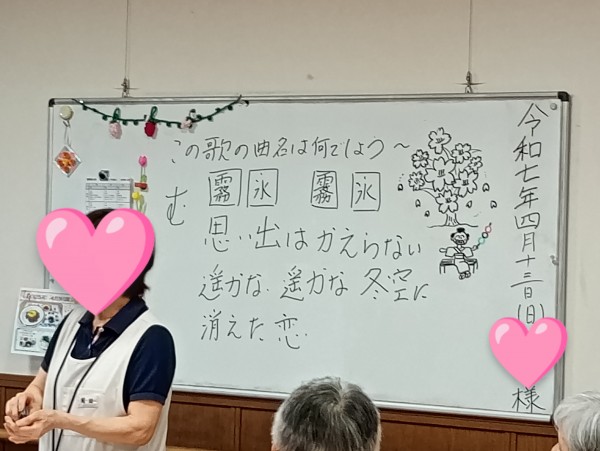 令和七年四月十三日(日)
様
この歌の曲名は何でしょう~
む 霧 氷 霧 氷
思い出はかえらない
遥かな 遥かな 冬空に
消えた 恋